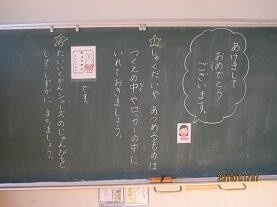 あけまして
おめでとう
ございます。
☆しゅくだいや、あつめるものは
つくえの中やロッカーの中に
いれておきましょう。
☆
です。
たいいくかんシューズのじゅんびを
して、しずかに まちましょう。